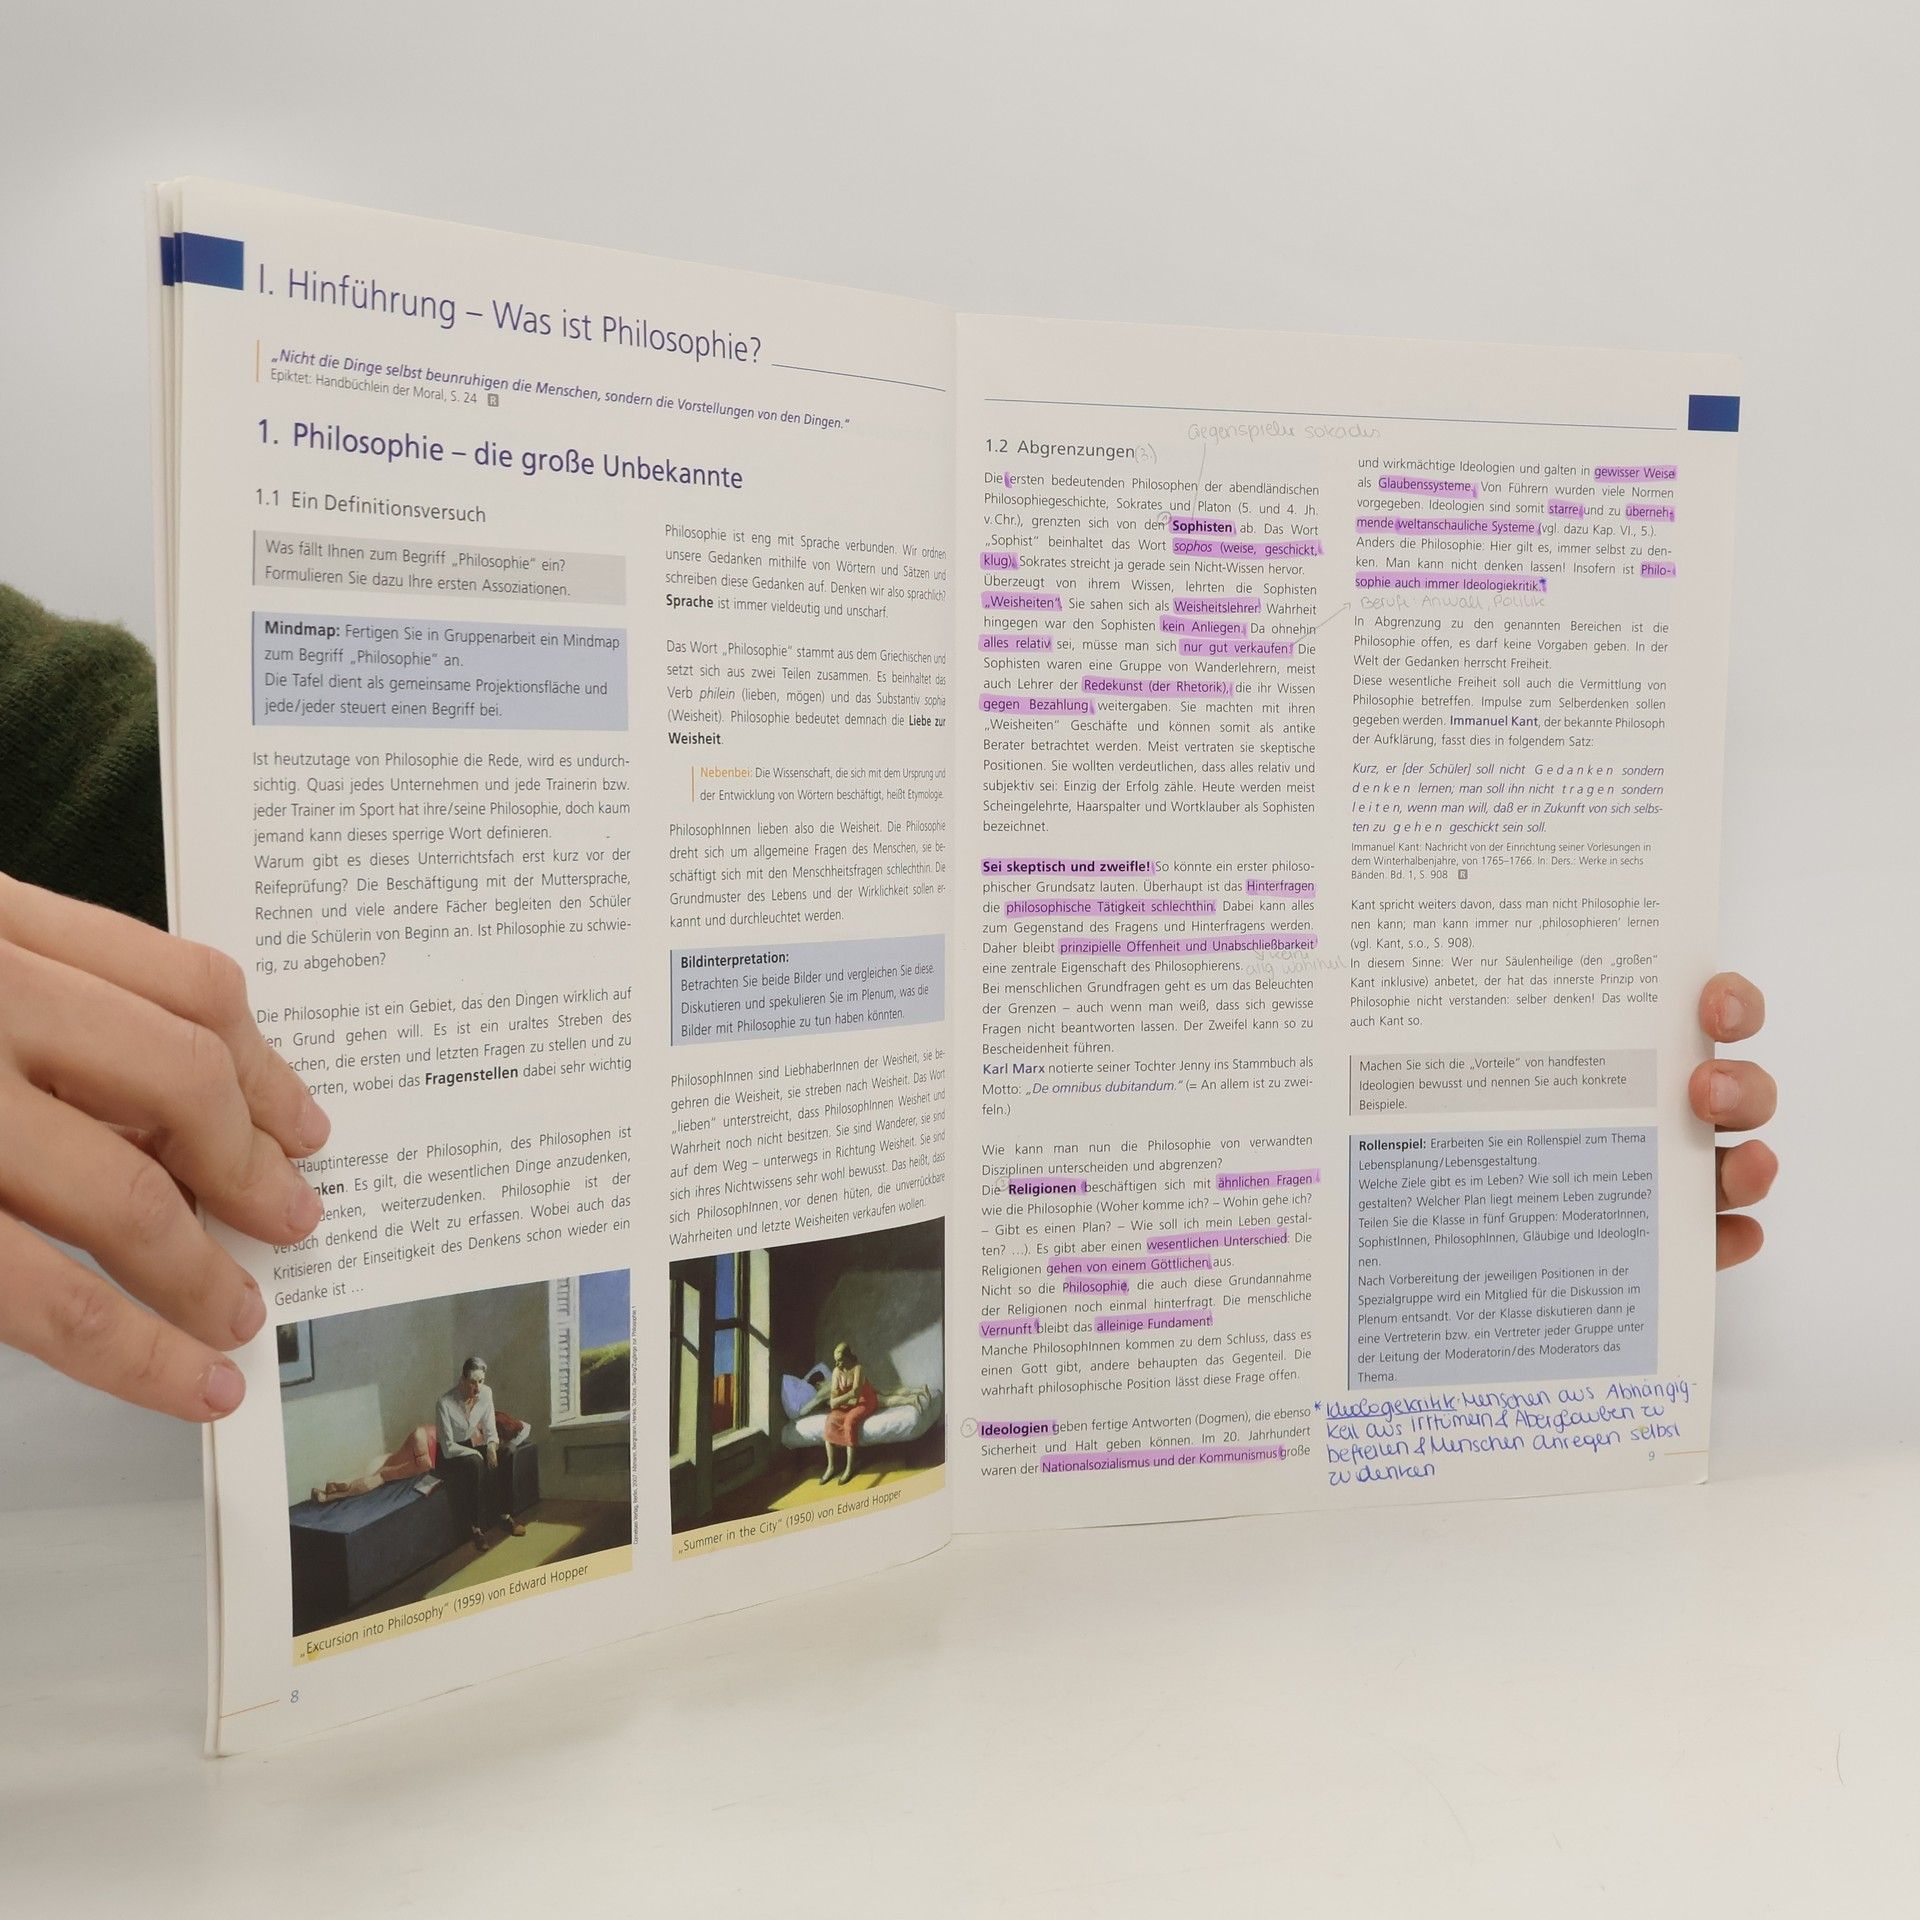 I. Hinführung – Was ist Philosophie?
„Nicht die Dinge selbst beunruhigen die Menschen, sondern die Vorstellungen von den Dingen.“
Epiktet: Handbüchlein der Moral, S. 24 R
1. Philosophie – die große Unbekannte
1.1 Ein Definitionsversuch
Was fällt Ihnen zum Begriff „Philosophie“ ein?
Formulieren Sie dazu Ihre ersten Assoziationen.
Mindmap: Fertigen Sie in Gruppenarbeit ein Mindmap
zum Begriff „Philosophie“ an.
Die Tafel dient als gemeinsame Projektionsfläche und
jede/jeder steuert einen Begriff bei.
Ist heutzutage von Philosophie die Rede, wird es undurch-
sichtig. Quasi jedes Unternehmen und jede Trainerin bzw.
jeder Trainer im Sport hat ihre/seine Philosophie, doch kaum
jemand kann dieses sperrige Wort definieren.
Warum gibt es dieses Unterrichtsfach erst kurz vor der
Reifeprüfung? Die Beschäftigung mit der Muttersprache,
Rechnen und viele andere Fächer begleiten den Schüler
und die Schülerin von Beginn an. Ist Philosophie zu schwie-
rig, zu abgehoben?
Die Philosophie ist ein Gebiet, das den Dingen wirklich auf
en Grund gehen will. Es ist ein uraltes Streben des
schen, die ersten und letzten Fragen zu stellen und zu
orten, wobei das Fragenstellen dabei sehr wichtig
Hauptinteresse der Philosophin, des Philosophen ist
nken. Es gilt, die wesentlichen Dinge anzudenken,
denken, weiterzudenken. Philosophie ist der
Versuch denkend die Welt zu erfassen. Wobei auch das
Kritisieren der Einseitigkeit des Denkens schon wieder ein
Gedanke ist ...
„Excursion into Philosophy“ (1959) von Edward Hopper
8
Philosophie ist eng mit Sprache verbunden. Wir ordnen
unsere Gedanken mithilfe von Wörtern und Sätzen und
schreiben diese Gedanken auf. Denken wir also sprachlich?
Sprache ist immer vieldeutig und unscharf.
Das Wort „Philosophie“ stammt aus dem Griechischen und
setzt sich aus zwei Teilen zusammen. Es beinhaltet das
Verb philein (lieben, mögen) und das Substantiv sophia
(Weisheit). Philosophie bedeutet demnach die Liebe zur
Weisheit.
Nebenbei: Die Wissenschaft, die sich mit dem Ursprung und
der Entwicklung von Wörtern beschäftigt, heißt Etymologie.
PhilosophInnen lieben also die Weisheit. Die Philosophie
dreht sich um allgemeine Fragen des Menschen, sie be-
schäftigt sich mit den Menschheitsfragen schlechthin. Die
Grundmuster des Lebens und der Wirklichkeit sollen er-
kannt und durchleuchtet werden.
Bildinterpretation:
Betrachten Sie beide Bilder und vergleichen Sie diese.
Diskutieren und spekulieren Sie im Plenum, was die
Bilder mit Philosophie zu tun haben könnten.
PhilosophInnen sind LiebhaberInnen der Weisheit, sie be-
gehren die Weisheit, sie streben nach Weisheit. Das Wort
„lieben“ unterstreicht, dass PhilosophInnen Weisheit und
Wahrheit noch nicht besitzen. Sie sind Wanderer, sie sind
auf dem Weg – unterwegs in Richtung Weisheit. Sie sind
sich ihres Nichtwissens sehr wohl bewusst. Das heißt, dass
sich PhilosophInnen, vor denen hüten, die unverrückbare
Wahrheiten und letzte Weisheiten verkaufen wollen.
„Summer in the City“ (1950) von Edward Hopper
1.2 Abgrenzungen (3.)
Gegenspieler
Die ersten bedeutenden Philosophen der abendländischen
Philosophiegeschichte, Sokrates und Platon (5. und 4. Jh.
v. Chr.), grenzten sich von den Sophisten ab. Das Wort
„Sophist“ beinhaltet das Wort sophos (weise, geschickt,
klug). Sokrates streicht ja gerade sein Nicht-Wissen hervor.
Überzeugt von ihrem Wissen, lehrten die Sophisten
„Weisheiten“. Sie sahen sich als Weisheitslehrer. Wahrheit
hingegen war den Sophisten kein Anliegen. Da ohnehin
alles relativ sei, müsse man sich nur gut verkaufen. Die
Sophisten waren eine Gruppe von Wanderlehrern, meist
auch Lehrer der Redekunst (der Rhetorik), die ihr Wissen
gegen Bezahlung weitergaben. Sie machten mit ihren
„Weisheiten“ Geschäfte und können somit als antike
Berater betrachtet werden. Meist vertraten sie skeptische
Positionen. Sie wollten verdeutlichen, dass alles relativ und
subjektiv sei: Einzig der Erfolg zähle. Heute werden meist
Scheingelehrte, Haarspalter und Wortklauber als Sophisten
bezeichnet.
Sei skeptisch und zweifle! So könnte ein erster philoso-
phischer Grundsatz lauten. Überhaupt ist das Hinterfragen
die philosophische Tätigkeit schlechthin. Dabei kann alles
zum Gegenstand des Fragens und Hinterfragens werden.
Daher bleibt prinzipielle Offenheit und Unabschließbarkeit
eine zentrale Eigenschaft des Philosophierens.
Bei menschlichen Grundfragen geht es um das Beleuchten
der Grenzen – auch wenn man weiß, dass sich gewisse
Fragen nicht beantworten lassen. Der Zweifel kann so zu
Bescheidenheit führen.
Karl Marx notierte seiner Tochter Jenny ins Stammbuch als
Motto: „De omnibus dubitandum.“ (= An allem ist zu zwei-
feln.)
Wie kann man nun die Philosophie von verwandten
Disziplinen unterscheiden und abgrenzen?
Die Religionen beschäftigen sich mit ähnlichen Fragen
wie die Philosophie (Woher komme ich? – Wohin gehe ich?
– Gibt es einen Plan? – Wie soll ich mein Leben gestal-
ten? ...). Es gibt aber einen wesentlichen Unterschied: Die
Religionen gehen von einem Göttlichen aus.
Nicht so die Philosophie, die auch diese Grundannahme
der Religionen noch einmal hinterfragt. Die menschliche
Vernunft bleibt das alleinige Fundament.
Manche PhilosophInnen kommen zu dem Schluss, dass es
einen Gott gibt, andere behaupten das Gegenteil. Die
wahrhaft philosophische Position lässt diese Frage offen.
Ideologien geben fertige Antworten (Dogmen), die ebenso
Sicherheit und Halt geben können. Im 20. Jahrhundert
waren der Nationalsozialismus und der Kommunismus große
und wirkmächtige Ideologien und galten in gewisser Weise
als Glaubenssysteme. Von Führern wurden viele Normen
vorgegeben. Ideologien sind somit starre und zu überneh-
mende weltanschauliche Systeme (vgl. dazu Kap. VI., 5.).
Anders die Philosophie: Hier gilt es, immer selbst zu den-
ken. Man kann nicht denken lassen! Insofern ist Philo-
sophie auch immer Ideologiekritik.*
Berufe: Anwalt, Politik
In Abgrenzung zu den genannten Bereichen ist die
Philosophie offen, es darf keine Vorgaben geben. In der
Welt der Gedanken herrscht Freiheit.
Diese wesentliche Freiheit soll auch die Vermittlung von
Philosophie betreffen. Impulse zum Selberdenken sollen
gegeben werden. Immanuel Kant, der bekannte Philosoph
der Aufklärung, fasst dies in folgendem Satz:
Kurz, er [der Schüler] soll nicht Gedanken sondern
denken lernen; man soll ihn nicht tragen sondern
leiten, wenn man will, daß er in Zukunft von sich selbs-
ten zu gehen geschickt sein soll.
Immanuel Kant: Nachricht von der Einrichtung seiner Vorlesungen in
dem Winterhalbenjahre, von 1765–1766. In: Ders.: Werke in sechs
Bänden. Bd. 1, S. 908 R
Kant spricht weiters davon, dass man nicht Philosophie ler-
nen kann; man kann immer nur ‚philosophieren‘ lernen
(vgl. Kant, s.o., S. 908).
In diesem Sinne: Wer nur Säulenheilige (den „großen“
Kant inklusive) anbetet, der hat das innerste Prinzip von
Philosophie nicht verstanden: selber denken! Das wollte
auch Kant so.
Machen Sie sich die „Vorteile“ von handfesten
Ideologien bewusst und nennen Sie auch konkrete
Beispiele.
Rollenspiel: Erarbeiten Sie ein Rollenspiel zum Thema
Lebensplanung/Lebensgestaltung.
Welche Ziele gibt es im Leben? Wie soll ich mein Leben
gestalten? Welcher Plan liegt meinem Leben zugrunde?
Teilen Sie die Klasse in fünf Gruppen: ModeratorInnen,
SophistInnen, PhilosophInnen, Gläubige und IdeologIn-
nen.
Nach Vorbereitung der jeweiligen Positionen in der
Spezialgruppe wird ein Mitglied für die Diskussion im
Plenum entsandt. Vor der Klasse diskutieren dann je
eine Vertreterin bzw. ein Vertreter jeder Gruppe unter
der Leitung der Moderatorin/des Moderators das
Thema.
* Ideologiekritik: Menschen aus Abhängig-
keit aus Irrtümern & Aberglauben zu
befreien & Menschen anregen selbst
zu denken
9